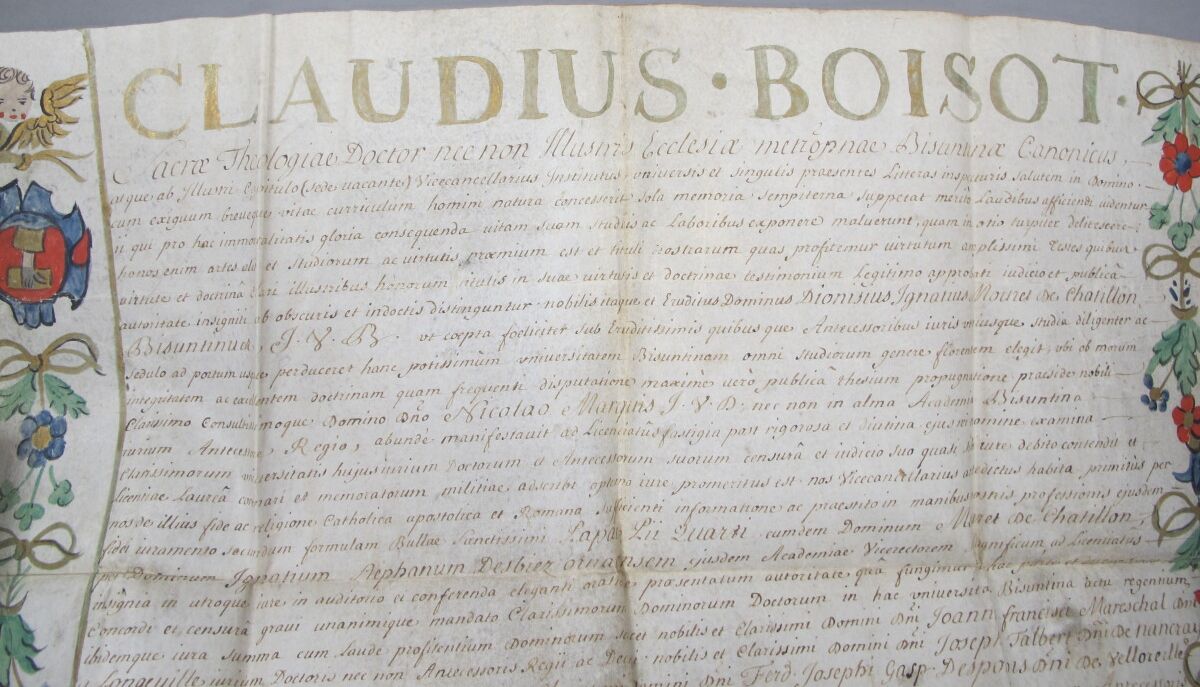 CLAUDIUS · BOISOT ·
Sacræ Theologiae Doctor nec non Illustris Ecclesiæ metropnae Bisuntinæ Canonicus,
atque ab Illustri Capitulo (sede vacante) Vicecancellarius Institutus universis et singulis praesentes Litteras inspecturis salutem in Domino.
cum exiguum breveque vitae curriculum homini natura concesserit sola memoria sempiterna suppetat merito Laudibus afficiendi videntur
ii qui pro hac immortalitatis gloria consequenda vitam suam studiis ac Laboribus exponere maluerunt, quam in otio turpiter delitescere
honos enim artes alit et studiorum ac virtutis præmium est et tituli nostrarum quas profitemur virtutum amplissimi Testes quibus
virtute et doctrinâ clari illustribus honorum titulis in suae virtutis et doctrinæ testimonium Legitimo approbati iudicio et publicâ
autoritate insigniti ab obscuris et indoctis distinguntur nobilis itaque et Eruditus Dominus Dionisius Ignatius Moret De Chatillon
Bisuntinus, I. V. B. ut cœpta fœliciter sub Eruditissimis quibusque Antecessoribus iuris utriusque studia diligenter ac
sedulo ad portum usque perduceret hanc potissimùm universitatem Bisuntinam omni studiorum genere florentem elegit, ubi ob morum
integritatem ac excellentem doctrinam quam frequenti disputatione maximè verò publicâ thesium propugnatione præside nobili
Clarissimo Consultissimoque Domino Dño Nicolao Marquis I. V. D. nec non in alma Academia Bisuntina
iurium Antecessore Regio, abundè manifestavit ad Licenciatûs fastigia post rigorosa et diutina ejus examine examina
Clarissimorum universitatis hujus iurium Doctorum et Antecessorum suorum censurâ et iudicio suo quasi iure debito contendit et
licentiae Laureâ coronari et memoratorum militiae adscribi optimo iure promeritus est nos Vicecancellarius antedictus habita primitùs per
nos de illius fide ac religione Catholica apostolica et Romana sufficienti informatione ac praestito in manibus nostris professionis ejusdem
fidei iuramento secundum formulam Bullae Sanctissimi Papae Pii Quarti eumdem Dominum Moret De Chatillon,
per Dominum Ignatium Stephanum Desbiez ornansem ejusdem Academiae Vicerectorem magnificum ad Licentiatus
insignia in utroque iure in auditorio ei conferenda eleganti oratione præsentatum autoritate quâ fungimur hac parte et
Concordi et censurâ gravi unanimique mandato Clarissimorum Dominorum Doctorum in hac universitate Bisuntina actu regentium
ibidemque iura summa cum Laude profitentium Dominorum scilicet nobilis et Clarissimi Domini Dñi Joann francisci Mareschal Dñi
Longeuille iurium Doctoris nec non Antecessores Regii ac Deca nobilis et Clarissimi Domini Dñi Joseph Talbert Dñi De nancray
Domini Dñi Ferd. Josephi Gasp. Despons Dñi De Velloreille